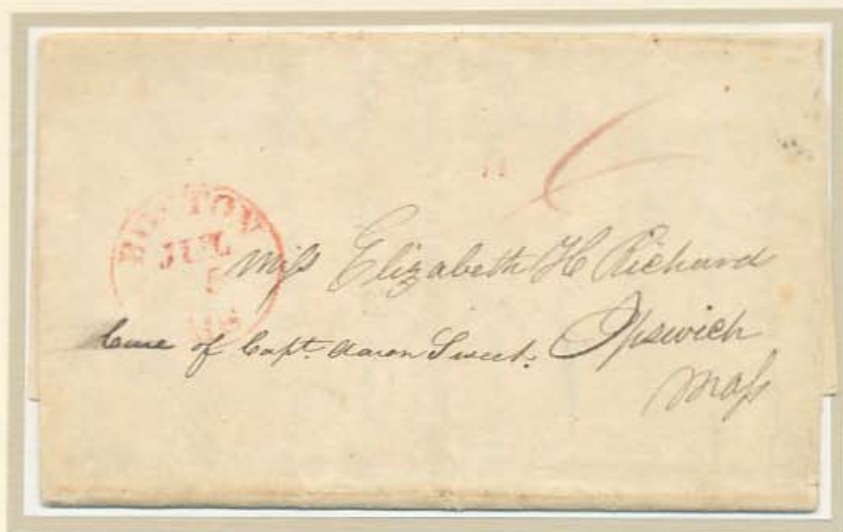 BOSTON
JUL
5
6
Miss Elizabeth H Richard
Care of Capt. Aaron Sweet. Ipswich
Mass